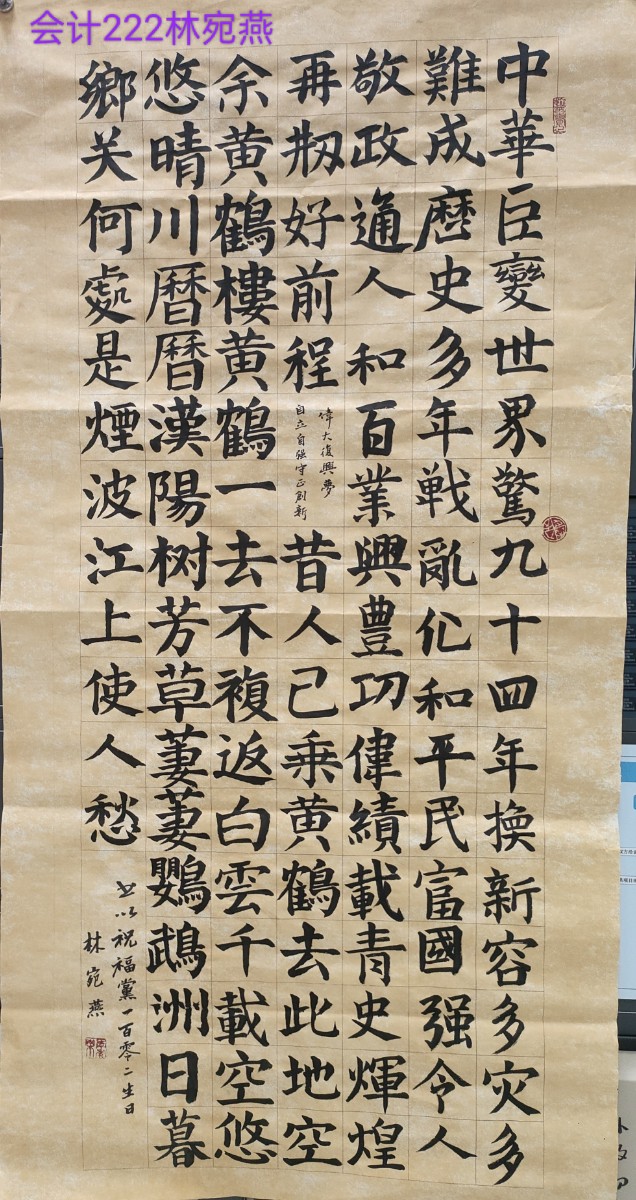 会计222林宛燕
中華巨變世界驚九十四年換新容多灾多
難成厯史多年戦亂化和平民富國强令人
敬政通人和百業興豐功偉績載青史輝煌
再刱好前程
偉大復興夢
自立自强守正創新
昔人已乘黄鶴去此地空
余黄鶴樓黄鶴一去不複返白雲千載空悠
悠晴川曆曆漢陽树芳草萋萋鸚鵡洲日暮
鄉关何處是煙波江上使人愁
书以祝福黨一百零二生日
林宛燕